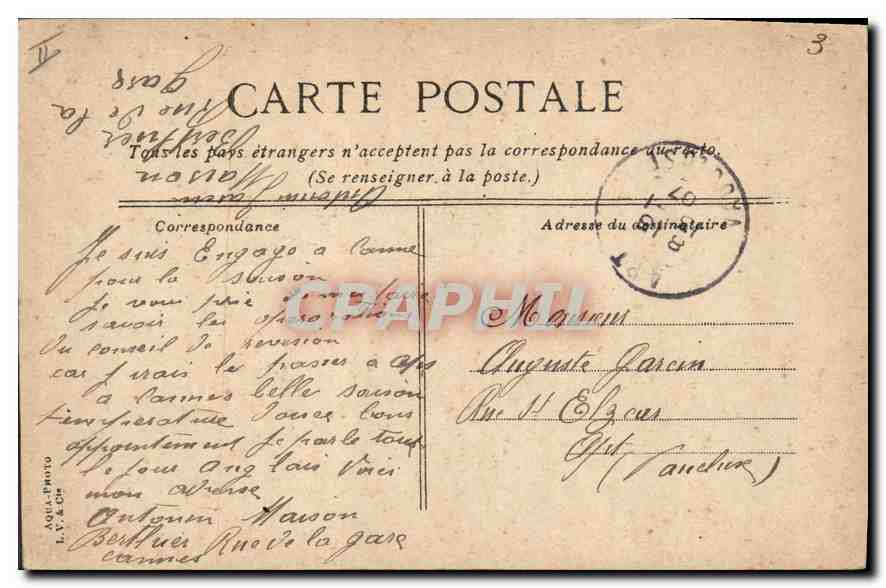 II
3
CARTE POSTALE
Tous les pays étrangers n'acceptent pas la correspondance au recto.
(Se renseigner à la poste.)
Correspondance
Adresse du destinataire
Je suis Engago a Canne
pour la saison
Je vous prie de me faire
savoir les operation
du conseil de revesion
car j'irais le passer a apt
a Cannes belle saison
temperature douce bons
appointement je parle tout
le jour anglais Voici
mon adresse
Antonin Maison
Berthier Rue de la gare
Cannes
Monsieur
Auguste Garcin
Rue St Elzear
Apt
(Vaucluse)
Antonin
Maison
Berthier
rue de la
gare
07
APT
AQUA-PHOTO
L.V. & Cie
CPAPHIL